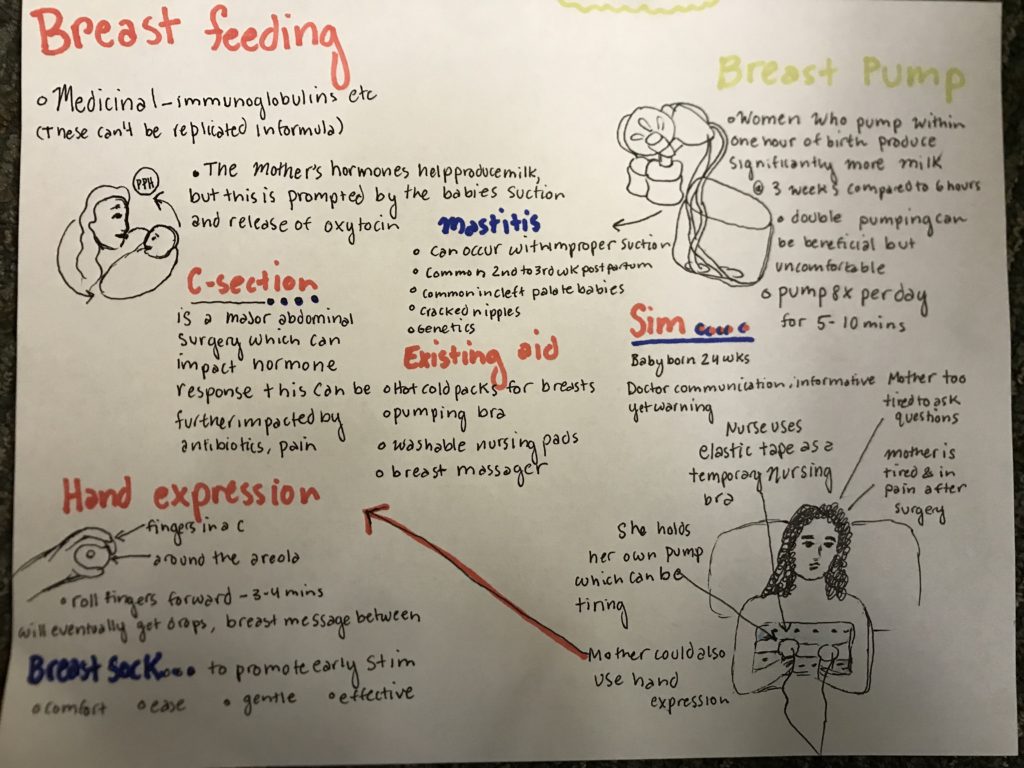 Breast feeding
Medicinal - immunoglobulins etc
(These can't be replicated in formula)
PPH
The mother's hormones help produce milk,
but this is prompted by the babies suction
and release of oxytocin
Breast Pump
Women who pump within
one hour of birth produce
significantly more milk
@ 3 weeks compared to 6 hours
double pumping can
be beneficial but
uncomfortable
pump 8x per day
for 5-10 mins
Mastitis
can occur with improper suction
Common 2nd to 3rd wk post partum
Common in cleft palate babies
cracked nipples
Genetics
C-section
is a major abdominal
surgery which can
impact hormone
response this can be
further impacted by
antibiotics, pain
Existing aid
Hot cold packs for breasts
pumping bra
washable nursing pads
breast massager
Sim
Baby born 24 wks
Doctor communication, informative
yet warning
Mother too
tired to ask
questions
mother is
tired & in
pain after
surgery
Nurse uses
elastic tape as a
temporary nursing
bra
She holds
her own pump
which can be
tiring
Mother could also
use hand
expression
Hand expression
fingers in a C
around the areola
roll fingers forward - 3-4 mins
will eventually get drops, breast message between
Breast Sock... to promote early stim
comfort ease gentle effective